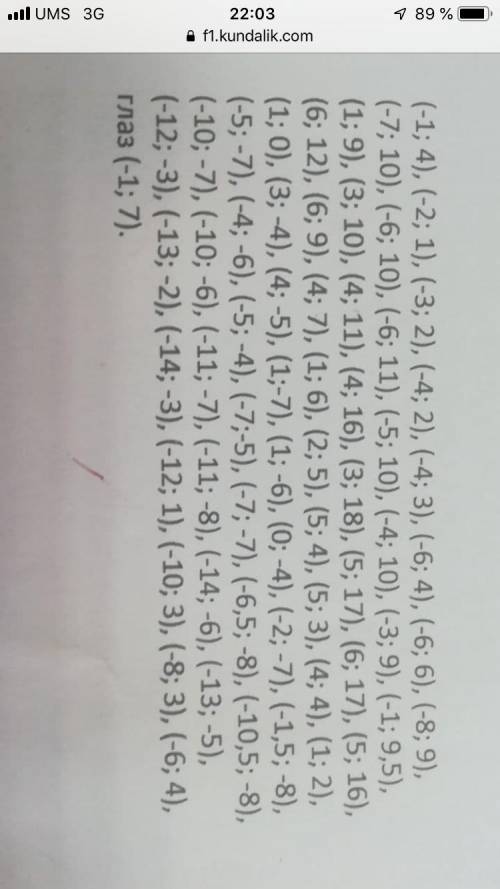 UMS 3G 22:03 89 %
f1.kundalik.com
(-1; 4), (-2; 1), (-3; 2), (-4; 2), (-4; 3), (-6; 4), (-6; 6), (-8; 9),
(-7; 10), (-6; 10), (-6; 11), (-5; 10), (-4; 10), (-3; 9), (-1; 9,5),
(1; 9), (3; 10), (4; 11), (4; 16), (3; 18), (5; 17), (6; 17), (5; 16),
(6; 12), (6; 9), (4; 7), (1; 6), (2; 5), (5; 4), (5; 3), (4; 4), (1; 2),
(1; 0), (3; -4), (4; -5), (1;-7), (1; -6), (0; -4), (-2; -7), (-1,5; -8),
(-5; -7), (-4; -6), (-5; -4), (-7;-5), (-7; -7), (-6,5; -8), (-10,5; -8),
(-10; -7), (-10; -6), (-11; -7), (-11; -8), (-14; -6), (-13; -5),
(-12; -3), (-13; -2), (-14; -3), (-12; 1), (-10; 3), (-8; 3), (-6; 4),
глаз (-1; 7).